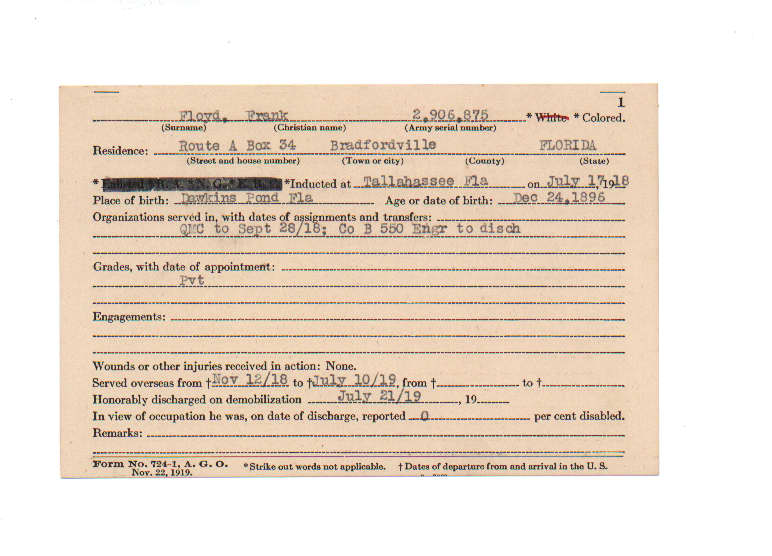 1
Floyd, Frank 2,906,875 * White * Colored.
(Surname) (Christian name) (Army serial number)
Residence: Route A Box 34 Bradfordville FLORIDA
(Street and house number) (Town or city) (County) (State)
* Enlisted * R. A. * N. G. * E. R. C. * Inducted at Tallahassee Fla on July 17, 1918
Place of birth: Dawkins Pond Fla Age or date of birth: Dec 24,1896
Organizations served in, with dates of assignments and transfers:
QMC to Sept 28/18; Co B 550 Engr to disch
Grades, with date of appointment:
Pvt
Engagements:
Wounds or other injuries received in action: None.
Served overseas from † Nov 12/18 to † July 10/19, from † to †
Honorably discharged on demobilization July 21/19, 19
In view of occupation he was, on date of discharge, reported 0 per cent disabled.
Remarks:
Form No. 724-1, A. G. O. * Strike out words not applicable. † Dates of departure from and arrival in the U. S.
Nov. 22, 1919.